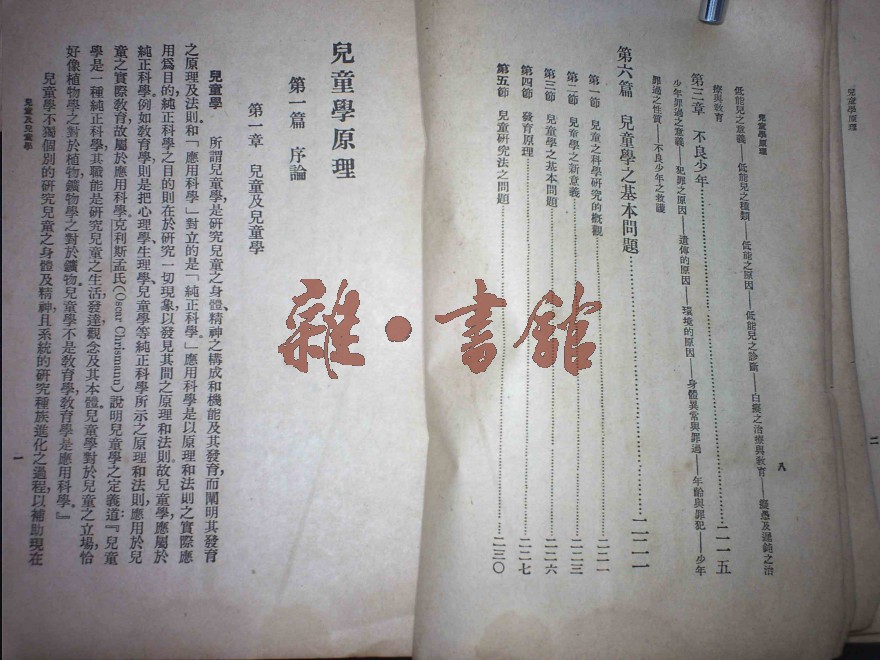 兒童學原理
二
兒童學原理
八
低能兒之意義——低能兒之種類——低能之原因——低能兒之診斷——白痴之治療與教育——擬愚及遲鈍之治
療與教育
第三章 不良少年 二一五
少年罪過之意義——犯罪之原因——遺傳的原因——環境的原因——身體異常與罪過——年齡與罪犯——少年
罪過之性質——不良少年之救護
第六篇 兒童學之基本問題 二二一
第一節 兒童之科學研究的概觀 二二一
第二節 兒童學之新意義 二二三
第三節 兒童學之基本問題 二二六
第四節 發育原理 二二七
第五節 兒童研究法之問題 二三〇
雜·書館
兒童學原理
第一篇 序論
第一章 兒童及兒童學
兒童學 所謂兒童學,是研究兒童之身體、精神之構成和機能及其發育,而闡明其發育
之原理及法則和「應用科學」對立的是「純正科學。」應用科學是以原理和法則之實際應
用爲目的,純正科學之目的則在於研究一切現象以發見其間之原理和法則。故兒童學,應屬於
純正科學。例如教育學,則是把心理學、生理學、兒童學等純正科學所示之原理和法則,應用於兒
童之實際教育,故屬於應用科學。克利斯孟氏(Oscar Chrismann)說明兒童學之定義道:『兒童
學是一種純正科學,其職能是研究兒童之生活、發達、觀念及其本體。兒童學對於兒童之立場,恰
好像植物學之對於植物,鑛物學之對於鑛物。兒童學不是教育學,教育學是應用科學。』
兒童學不獨個別的研究兒童之身體及精神,且系統的研究種族進化之過程,以補助現在
兒童及兒童學
一